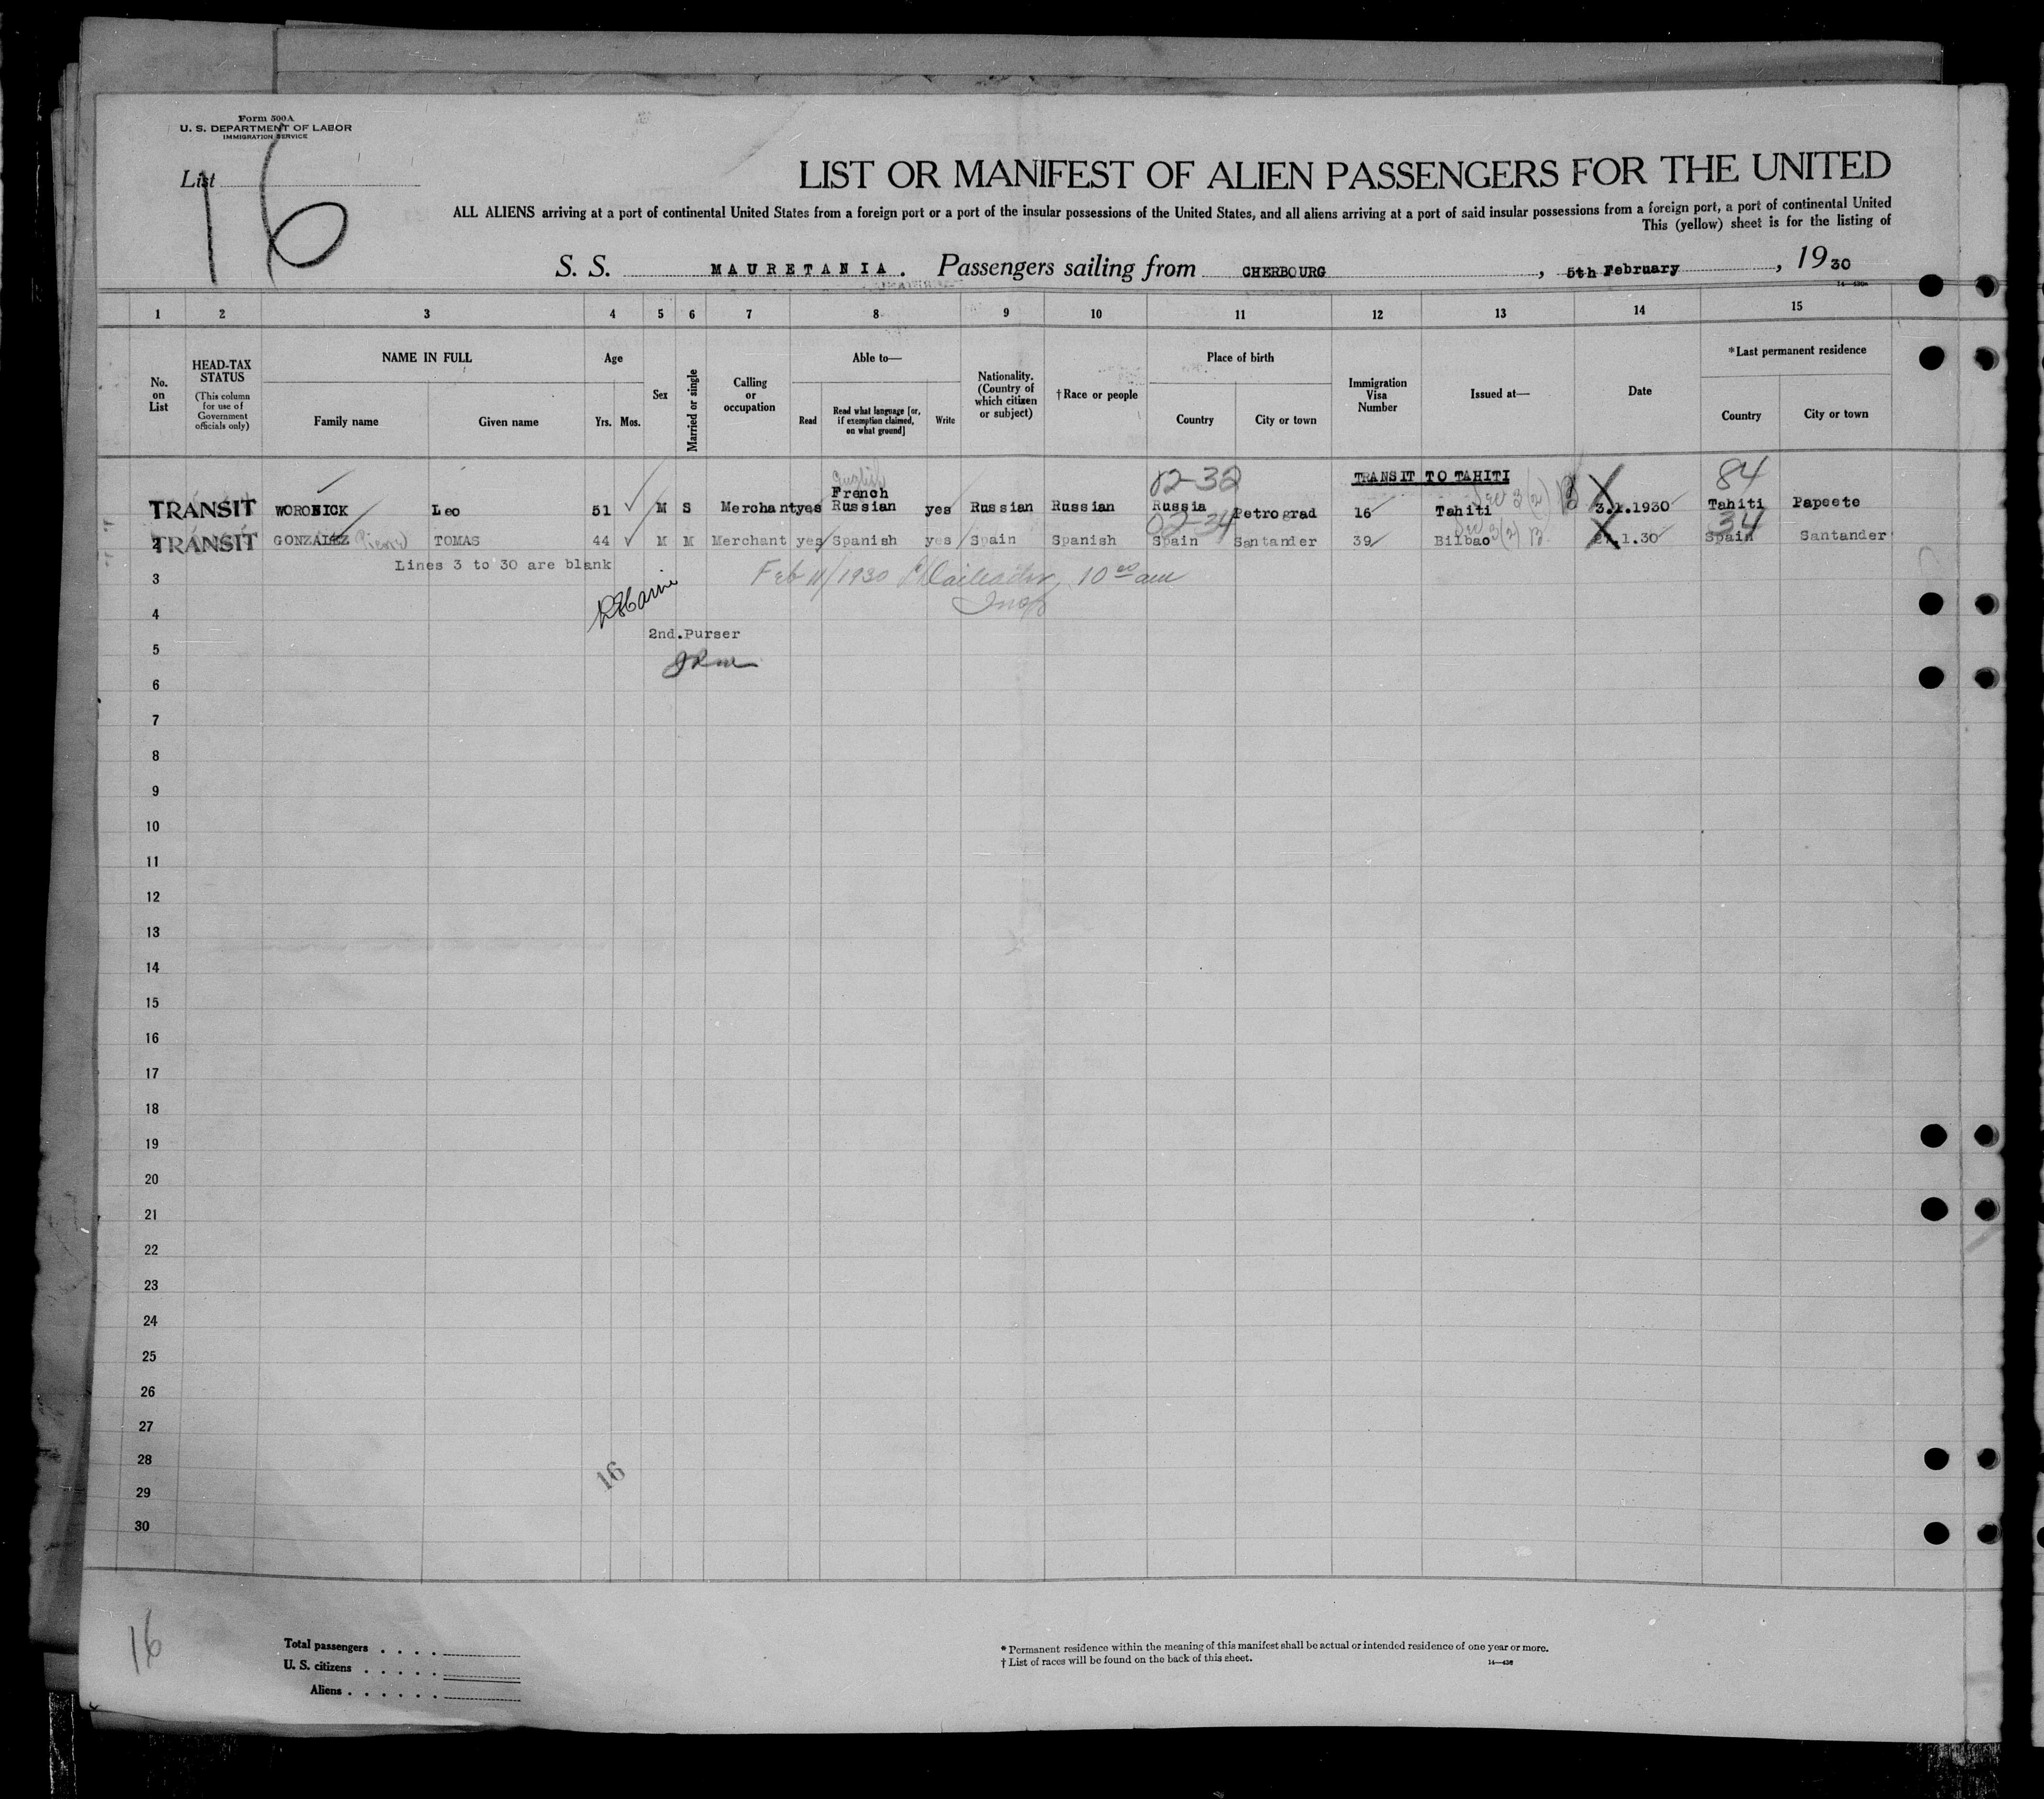 Form 500A
U. S. DEPARTMENT OF LABOR
IMMIGRATION SERVICE
List
16
LIST OR MANIFEST OF ALIEN PASSENGERS FOR THE UNITED
ALL ALIENS arriving at a port of continental United States from a foreign port or a port of the insular possessions of the United States, and all aliens arriving at a port of said insular possessions from a foreign port, a port of continental United
This (yellow) sheet is for the listing of
S. S. MAURETANIA. Passengers sailing from CHERBOURG, 5th February, 1930
1 2 3 4 5 6 7 8 9 10 11 12 13 14 15
No. on List
HEAD-TAX STATUS
(This column for use of Government officials only)
NAME IN FULL
Family name Given name
Age
Yrs. Mos.
Sex
Married or single
Calling or occupation
Able to—
Read Read what language [or, if exemption claimed, on what ground] Write
Nationality. (Country of which citizen or subject)
†Race or people
Place of birth
Country City or town
Immigration Visa Number
Issued at—
Date
*Last permanent residence
Country City or town
English 02-32 TRANSIT TO TAHITI 84
French
TRANSIT WORONICK Leo 51 M S Merchant yes Russian yes Russian Russian Russia Petrograd 16 Tahiti Sec 3(2) 3.1.1930 Tahiti Papeete
02-34 34
2 TRANSIT GONZALEZ TOMAS 44 M M Merchant yes Spanish yes Spain Spanish Spain Santander 39 Bilbao 3(2) B 1.30 Spain Santander
Lines 3 to 30 are blank
Feb 11/1930 10 00 am
Insp
3
4
2nd.Purser
5
6
7
8
9
10
11
12
13
14
15
16
17
18
19
20
21
22
23
24
25
26
27
28
16
29
30
16
Total passengers
U. S. citizens
Aliens
* Permanent residence within the meaning of this manifest shall be actual or intended residence of one year or more.
† List of races will be found on the back of this sheet.
14—430